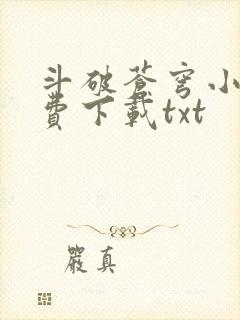 斗破蒼穹小
費下載txt
嚴真